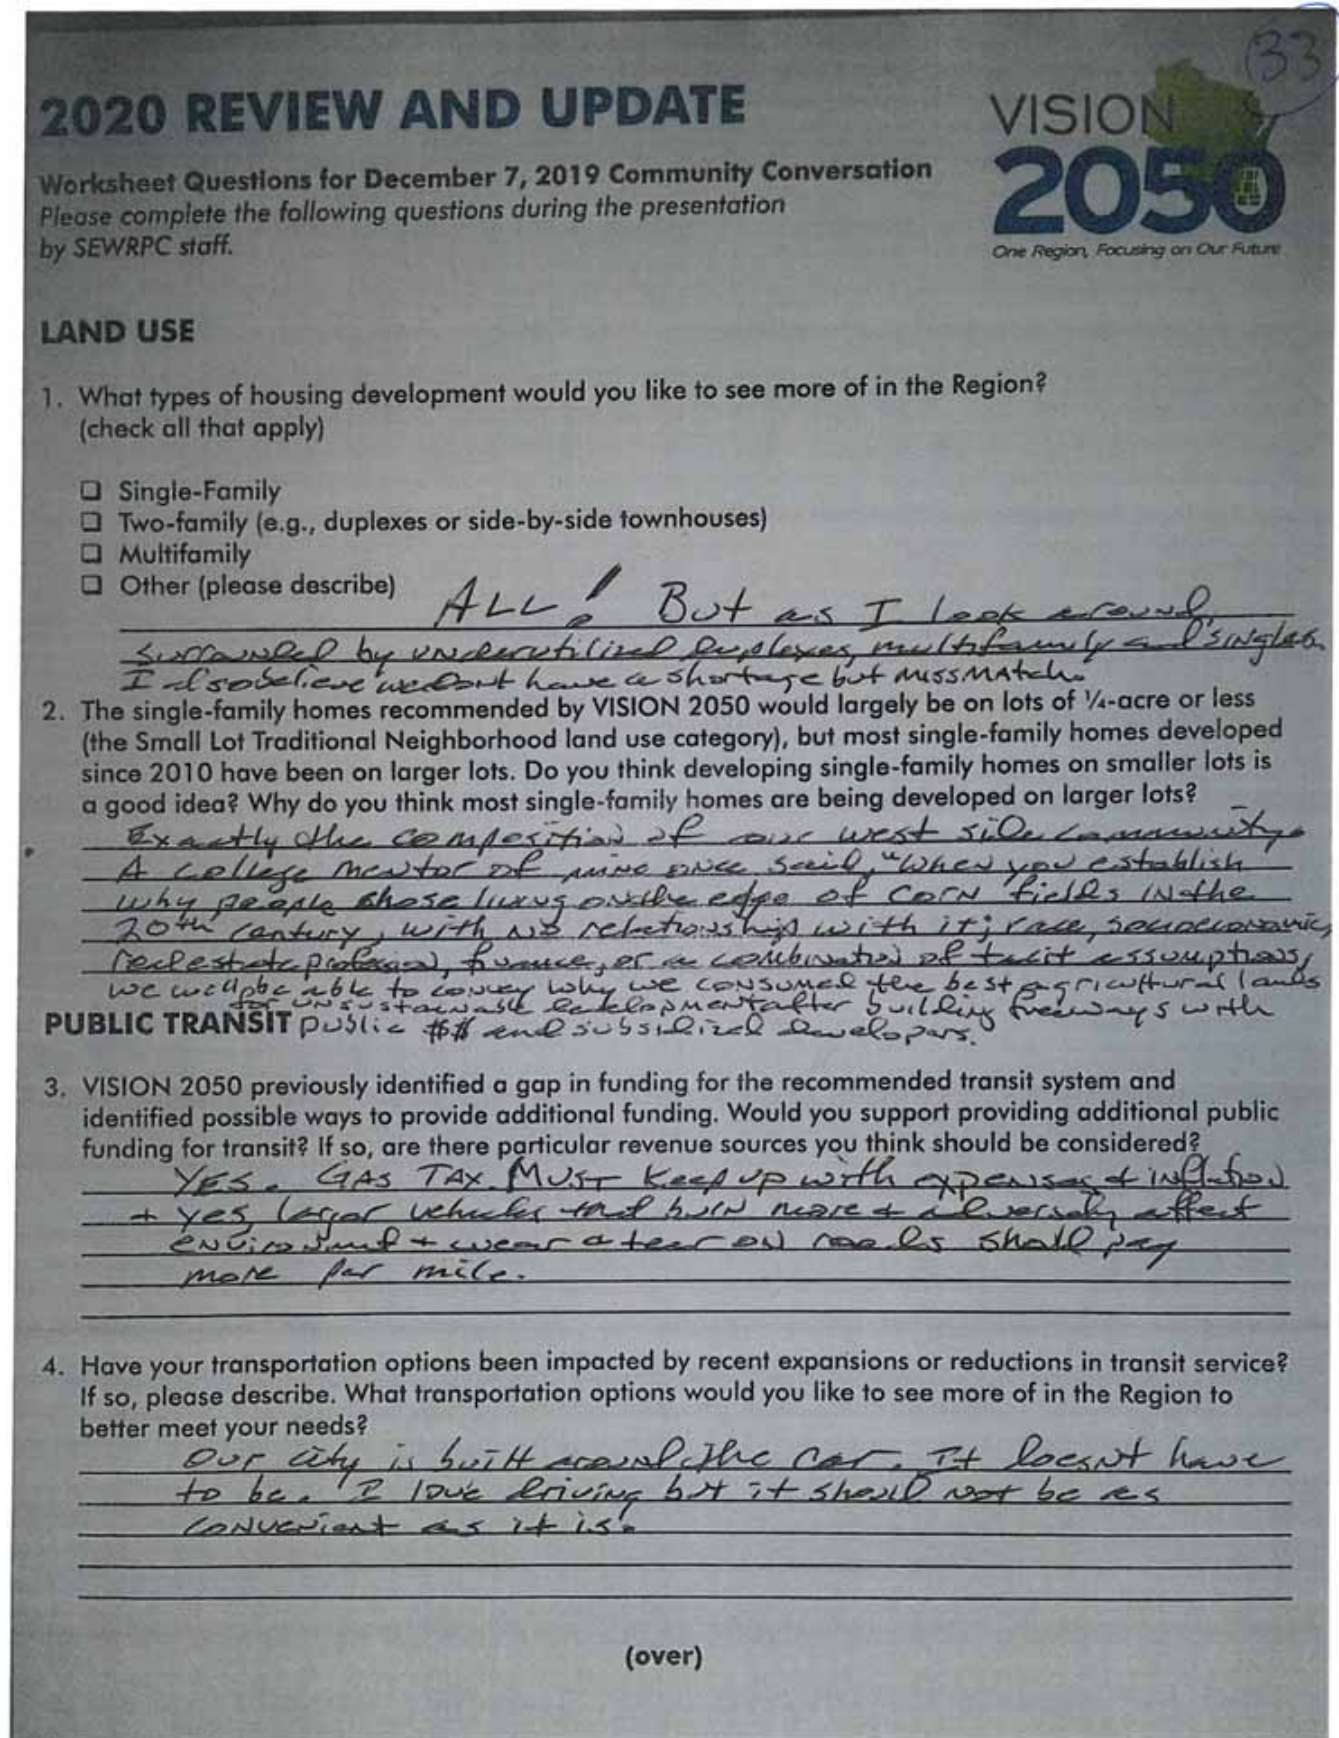 33
2020 REVIEW AND UPDATE
VISION
2050
One Region, Focusing on Our Future
Worksheet Questions for December 7, 2019 Community Conversation
Please complete the following questions during the presentation
by SEWRPC staff.
LAND USE
1. What types of housing development would you like to see more of in the Region?
(check all that apply)
❑ Single-Family
❑ Two-family (e.g., duplexes or side-by-side townhouses)
❑ Multifamily
❑ Other (please describe) ALL! But as I look around
surrounded by underutilized duplexes, multifamily and singles.
I also believe we dont have a shortage but missmatch.
2. The single-family homes recommended by VISION 2050 would largely be on lots of ¼-acre or less
(the Small Lot Traditional Neighborhood land use category), but most single-family homes developed
since 2010 have been on larger lots. Do you think developing single-family homes on smaller lots is
a good idea? Why do you think most single-family homes are being developed on larger lots?
Exactly the composition of our west side community.
A college mentor of mine once said, "When you establish
why people chose living on the edge of corn fields in the
20th century, with no relationship with it; race, socioeconomic,
real estate , finance, or a combination of tacit assumptions,
we be able to convey why we consumed the best agricultural lands
for unsustainable development after building freeways with
PUBLIC TRANSIT public $$ and subsidized developers.
3. VISION 2050 previously identified a gap in funding for the recommended transit system and
identified possible ways to provide additional funding. Would you support providing additional public
funding for transit? If so, are there particular revenue sources you think should be considered?
YES. GAS TAX. Must keep up with expenses + inflation
+ yes, larger vehicles that burn more + adversely affect
environment + wear a tear on roads shall pay
more per mile.
4. Have your transportation options been impacted by recent expansions or reductions in transit service?
If so, please describe. What transportation options would you like to see more of in the Region to
better meet your needs?
Our city is built around the car. It doesnt have
to be. I love driving but it should not be as
convenient as it is.
(over)